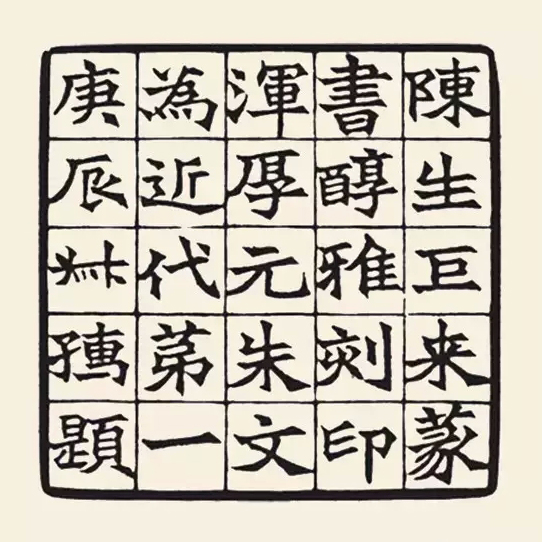 陳生巨来篆
書醇雅刻印
渾厚元朱文
為近代苐一
庚辰叔孺題